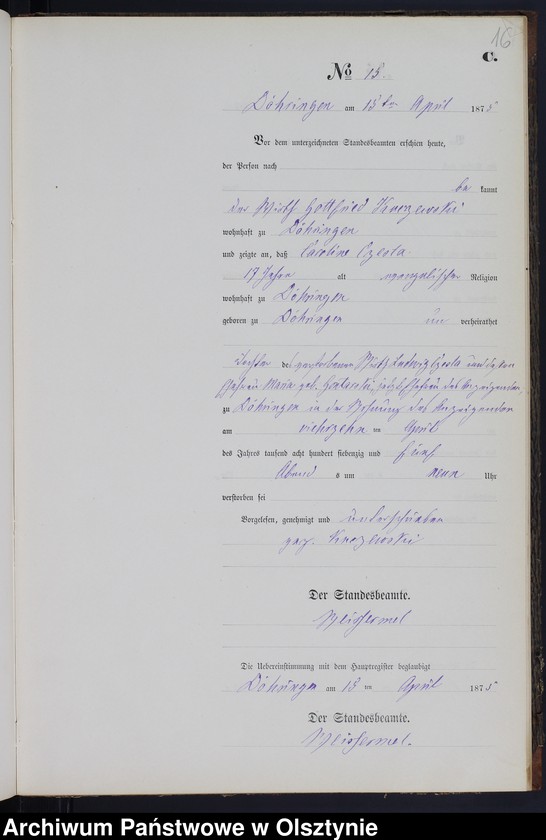 16
C.
No 15.
Döhringen am 15ten April 1875
Vor dem unterzeichneten Standesbeamten erschien heute,
der Person nach
be kannt
der Wirth Gottfried
wohnhaft zu Döhringen
und zeigte an, daß Caroline Czesla
17 Jahre alt evangelischer Religion
wohnhaft zu Döhringen
geboren zu Döhringen un verheirathet
Tochter des verstorbenen Wirth Ludwig Czesla und dessen
Maria geb. jetzt Ehefrau des Anzeigenden,
zu Döhringen in der Wohnung des Anzeigenden
am vierzehn ten April
des Jahres tausend acht hundert siebenzig und fünf
Abend s um neun Uhr
verstorben sei
Vorgelesen, genehmigt und unterschrieben
gez.
Der Standesbeamte.
Meissermel
Die Uebereinstimmung mit dem Hauptregister beglaubigt
Döhringen am 15 ten April 1875
Der Standesbeamte.
Meissermel.
Archiwum Państwowe w Olsztynie